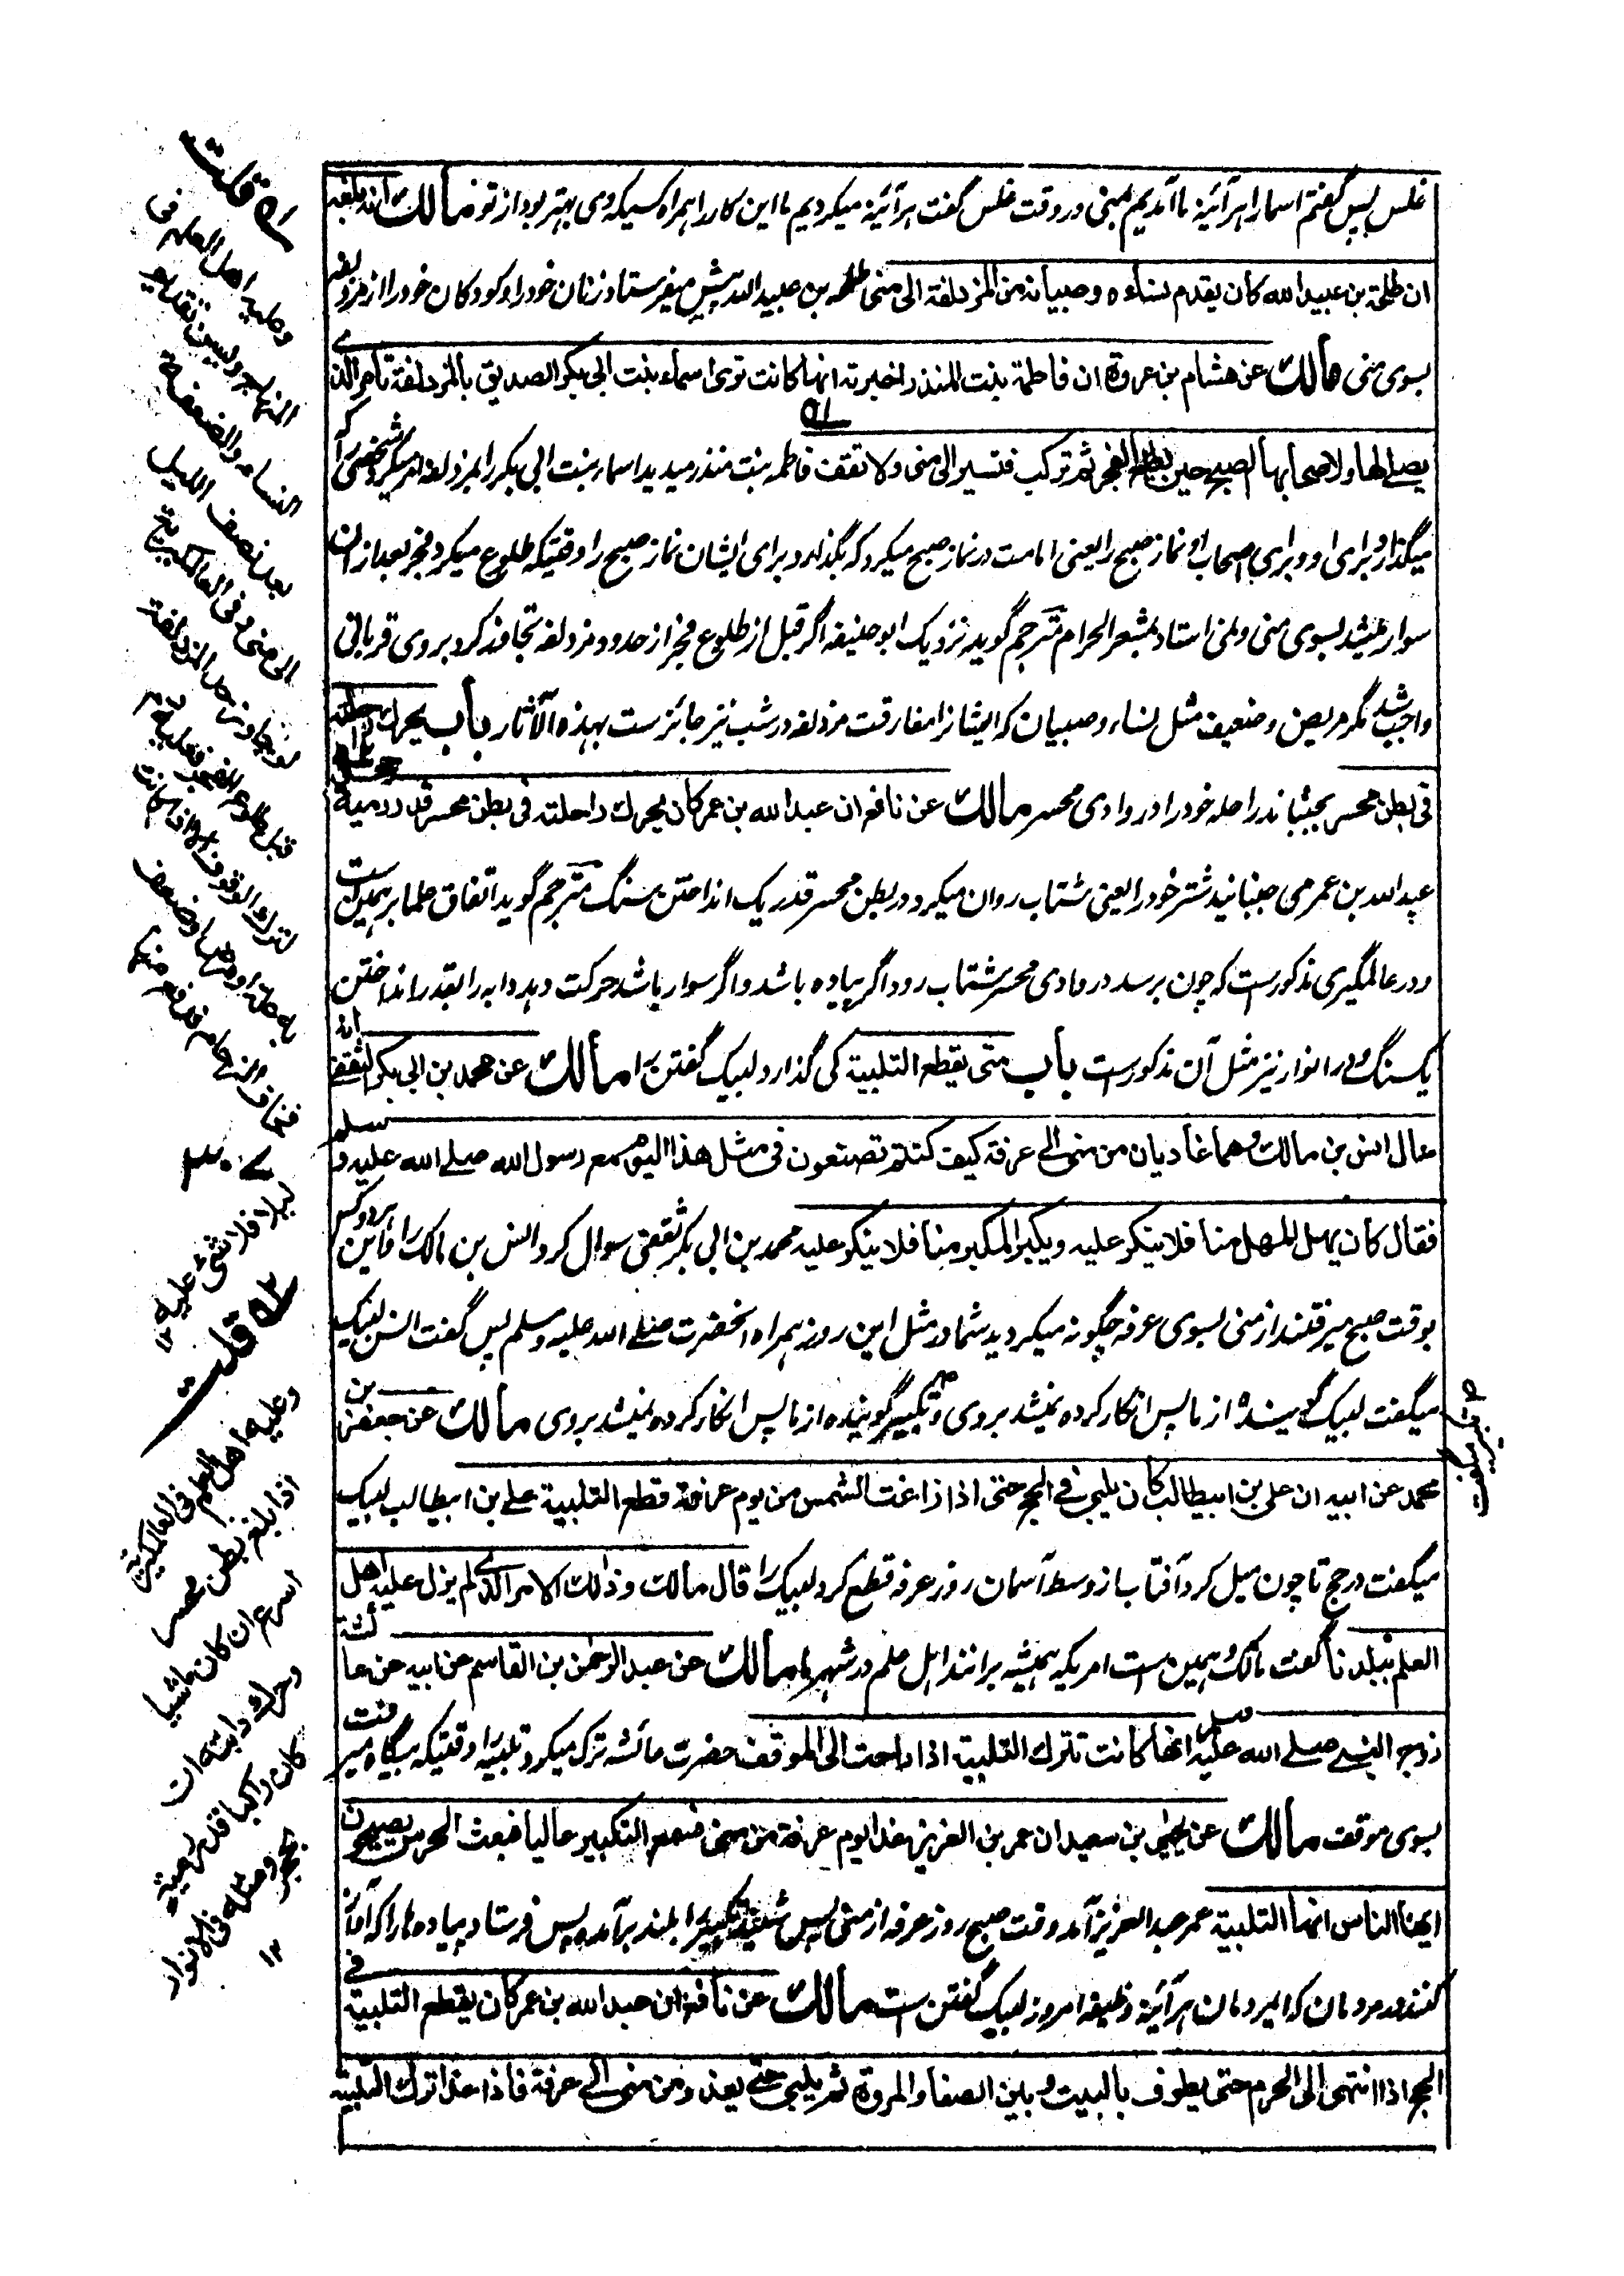 غلس پس گفتم اسما را هر آئینه ما آمدیم بمنی در وقت غلس گفت هر آئینه میکردیم ما این کار را همراه کسیکه وی بهتر بود از تو مالك انه بلغه
ان طلحة بن عبيد الله كان يقدم نساءه وصبيانه من المزدلفة الى منى طلحه بن عبید الله پیش میفرستاد زنان خود را و کودکان خود را از مزدلفه
بسوی منی مالك عن هشام بن عروة ان فاطمة بنت المنذر اخبرته انها كانت ترى اسماء بنت ابى بكر الصديق بالمزدلفة تأمر الذى
يصلى لها ولاصحابها الصبح حين يطلع الفجر ثم تركب فتسير الى منى ولا تقف فاطمه بنت منذر میدید اسماء بنت ابی بکر را بمزدلفه امر میکرد شخصی را که
میگذارد برای او و برای اصحاب او نماز صبح را یعنی امامت در نماز صبح میکرد که بگذارد برای ایشان نماز صبح را وقتیکه طلوع میکرد فجر بعد ازان
سوار میشد بسوی منی و نمی استاد بمشعر الحرام مترجم گوید نزدیک ابو حنیفه اگر قبل از طلوع فجر از حدود مزدلفه تجاوز کرد بروی قربانی
واجب شد مگر مریض و ضعیف مثل نساء و صبیان که ایشانرا مفارقت مزدلفه در شب نیز جائز ست بهذه الآثار باب يحرك راحلته
فى بطن محسر بجنباند راحله خود را در وادی محسر مالك عن نافع ان عبد الله بن عمر كان يحرك راحلته فى بطن محسر قدر رمية بحجر
عبد الله بن عمر می جنبانید شتر خود را یعنی شتاب روان میکرد در بطن محسر قدر یک انداختن سنگ مترجم گوید اتفاق علما بر همین ست
و در عالمگیری مذکور ست که چون برسد در وادی محسر شتاب رود اگر پیاده باشد و اگر سوار باشد حرکت دهد دابه را بقدر انداختن
یک سنگ و در انوار نیز مثل آن مذکور ست باب متى يقطع التلبية کی گذارد لبیک گفتن را مالك عن محمد بن ابى بكر الثقفى انه
سال انس بن مالك وهما غاديان من منى الى عرفة كيف كنتم تصنعون فى مثل هذا اليوم مع رسول الله صلى الله عليه وسلم
فقال كان يهل المهل منا فلا ينكر عليه ويكبر المكبر منا فلا ينكر عليه محمد بن ابی بکر ثقفی سوال کرد انس بن مالک را و این هر دو کس
بوقت صبح میرفتند از منی بسوی عرفه چگونه میکردید شما در مثل این روز همراه آنحضرت صلی الله علیه وسلم پس گفت انس لبیک
میگفت لبیک گوینده از ما پس انکار کرده نمیشد بروی و تکبیر گوینده از ما پس انکار کرده نمیشد بروی مالك عن جعفر بن
تکبیر میگفت
محمد عن ابيه ان على بن ابيطالب كان يلبى فى الحج حتى اذا زاغت الشمس من يوم عرفة قطع التلبية علی بن ابیطالب لبیک
میگفت در حج تا چون میل کرد آفتاب از وسط آسمان روز عرفه قطع کرد لبیک را قال مالك وذلك الامر الذى لم يزل عليه اهل
العلم ببلدنا گفت مالک همین ست امریکه همیشه برانند اهل علم در شهر ما مالك عن عبد الرحمن بن القاسم عن ابيه عن عائشة
زوج النبى صلى الله عليه وسلم انها كانت تترك التلبية اذا راحت الى الموقف حضرت عائشه ترک میکرد تلبیه را وقتیکه بیگاه میرفت
بسوی موقف مالك عن يحيى بن سعيد ان عمر بن العزيز غدا يوم عرفة من منى فسمع التكبير عاليا فبعث الحرس يصيحون
ايها الناس انها التلبية عمر عبد العزیز آمد وقت صبح روز عرفه از منی پس شنید تکبیر را بلند برآمده پس فرستاد پیاده ها را که آواز
کنند در مردمان که ای مردمان هر آئینه وظیفه امروز لبیک گفتن ست مالك عن نافع ان عبد الله بن عمر كان يقطع التلبية فى
الحج اذا انتهى الى الحرم حتى يطوف بالبيت وبين الصفا والمروة ثم يلبى حتى يغدو من منى الى عرفة فاذا غدا ترك التلبية
قلت
وعليه اهل العلم فى
المنهاج ويسن تقديم
النساء والضعفة
بعد نصف الليل
الى منى وفى العالمكيرية
لو جاوز حد المزدلفة
قبل طلوع الفجر فعليه دم
لتركه الوقوف الا اذا كانت
به علة او مرض او ضعف
فخاف الزحام فدفع منها
ليلا فلا شئ عليه ١٢
قلت
وعليه اهل العلم فى العالمكيرية
اذا بلغ بطن محسر
اسرع ان كان ماشيا
وحرك دابته ان
كان راكبا قدر رمية
حجر ومثله فى الانوار
١٢